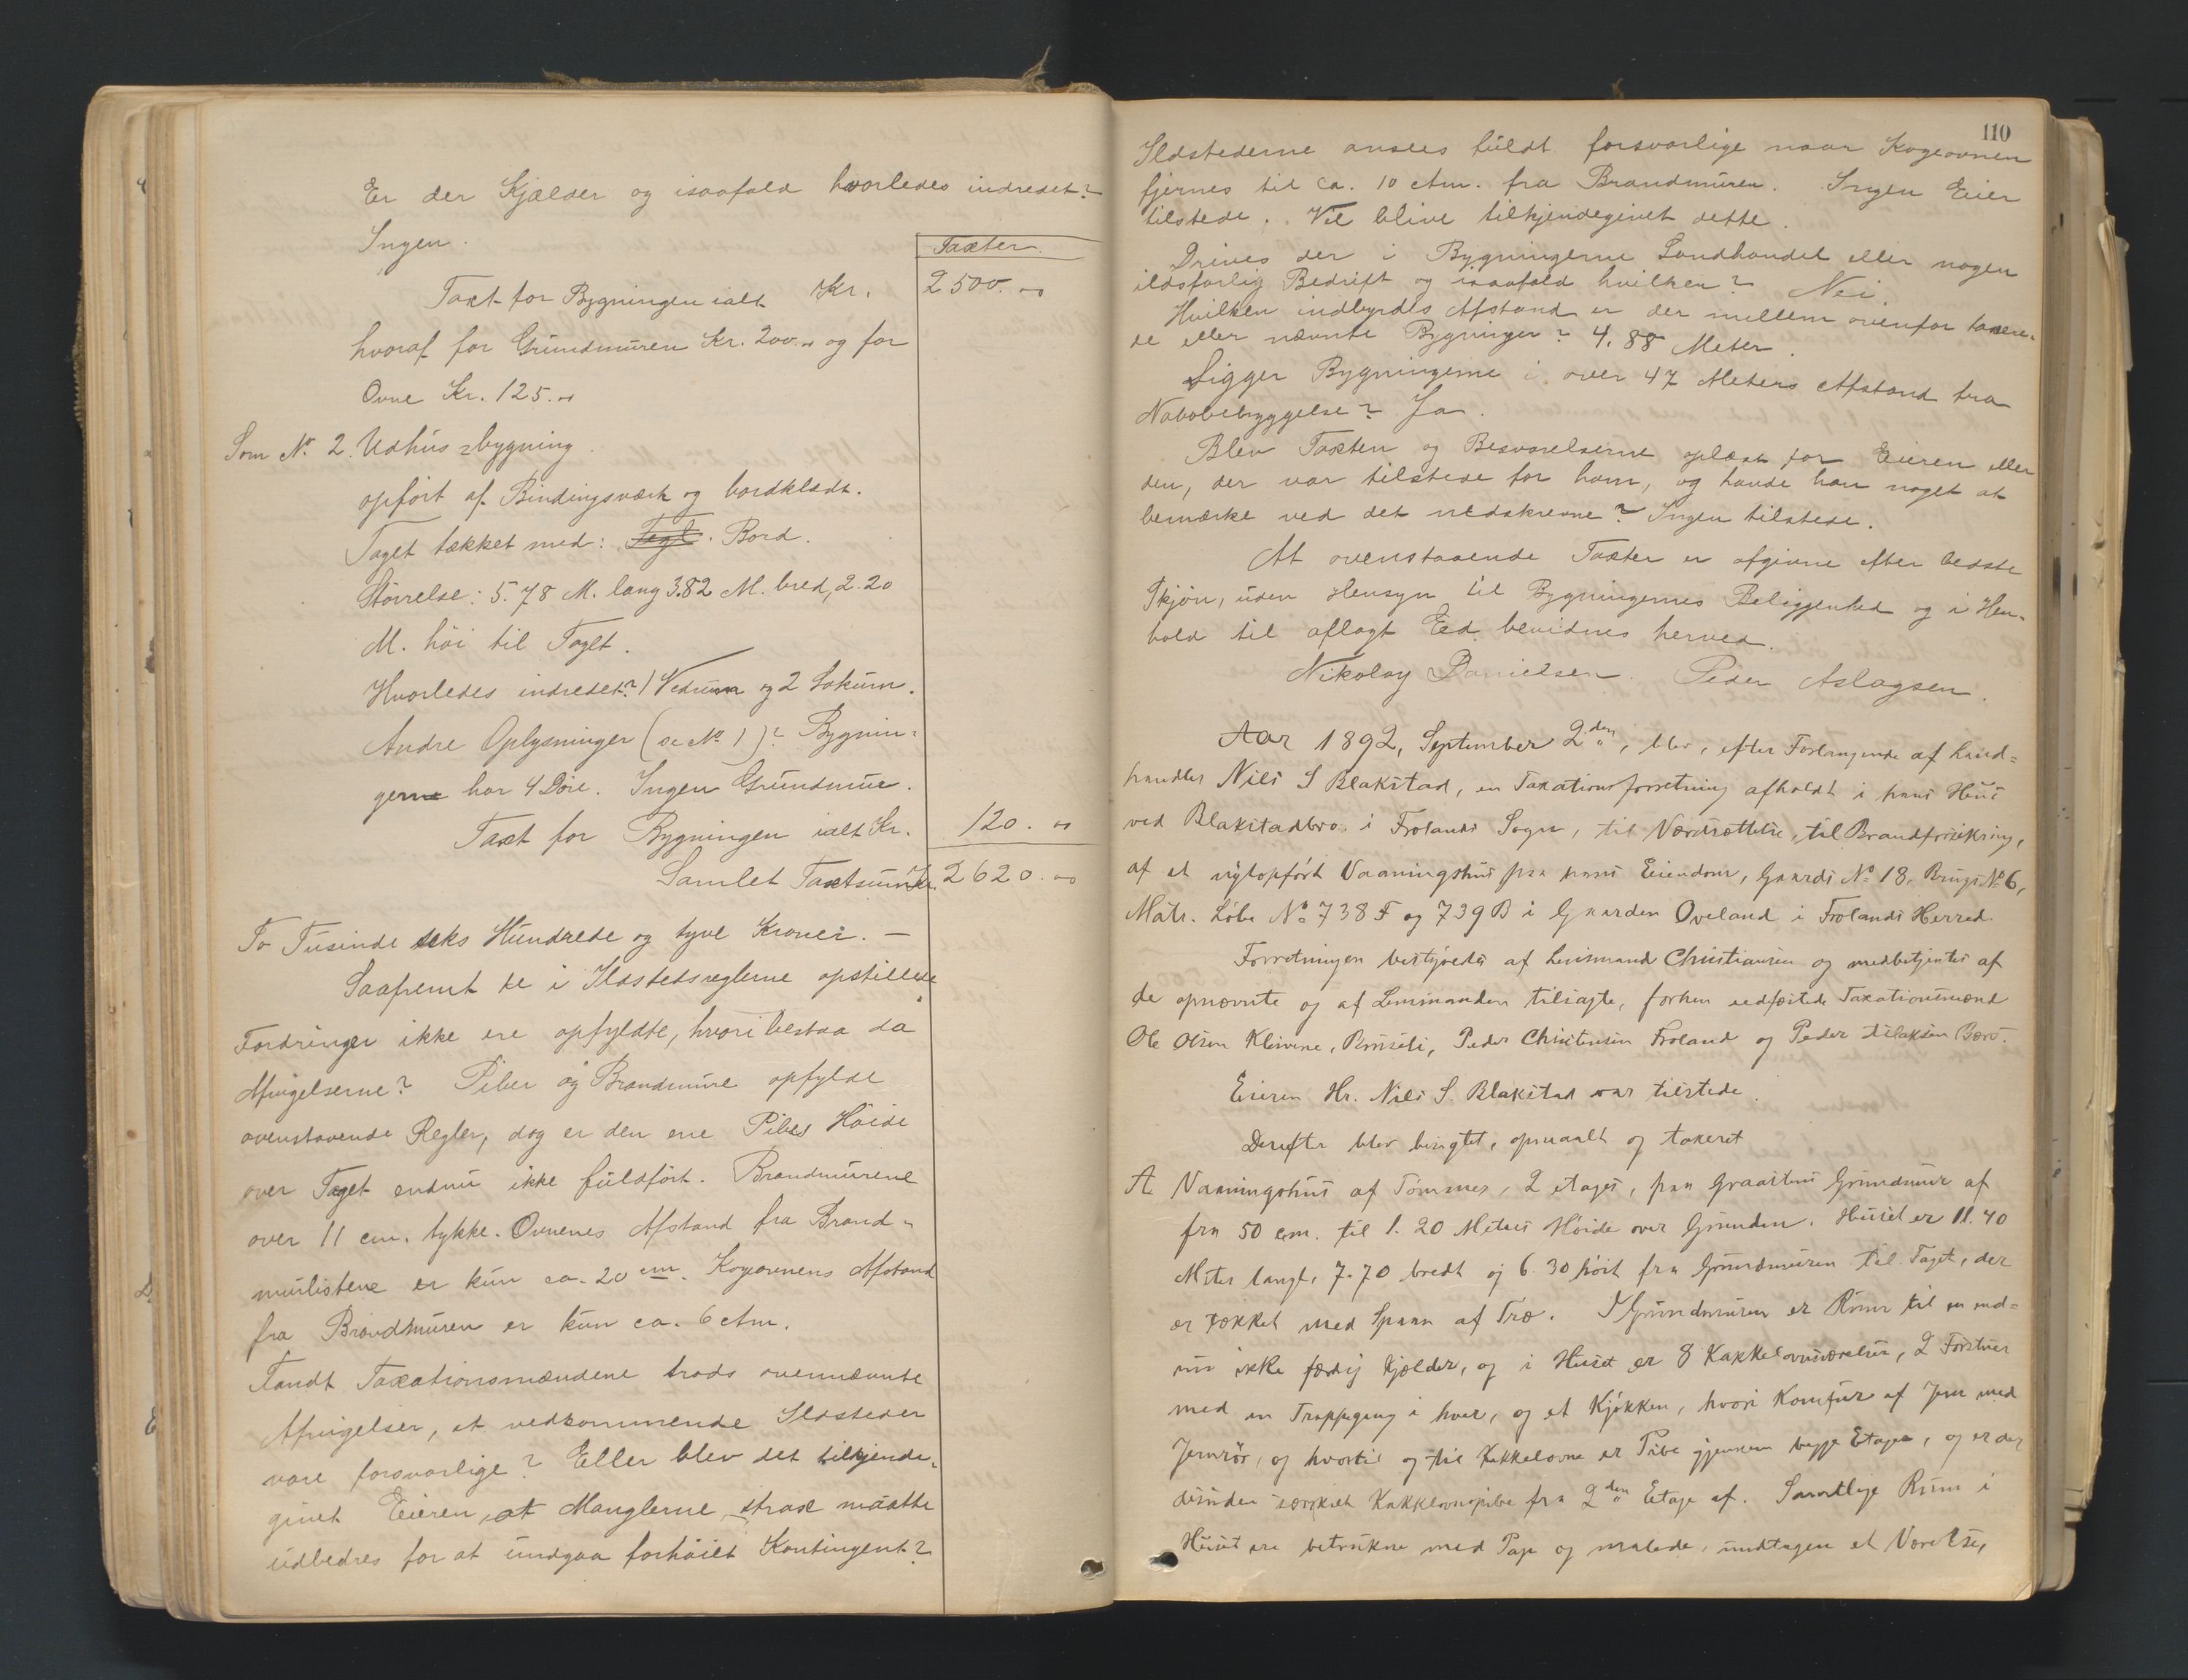 Er der Kjælder og isaafald hvorledes indredet?
Ingen.
Taxter.
Taxt for Bygningen ialt Kr. 2500.00
hvoraf for Grundmuren Kr. 200.00 og for
Ovne Kr. 125.00
Som No. 2. Udhusbygning.
opført af Bindingsværk og bordklædt.
Taget tækket med: Tegl. Bord.
Størrelse: 5.78 M. lang 3.82 M. bred, 2.20
M. høi til Taget.
Hvorledes indredet? 1 Vedrum og 2 Lokum.
Andre Oplysninger (se No 1)? Bygnin-
gerne har 4 Døre. Ingen Grundmur.
Taxt for Bygningen ialt Kr. 120.00
Samlet Taxtsum Kr. 2620.00
To Tusinde seks Hundrede og tyve Kroner. —
Saafremt de i Ildstedsreglerne opstillede
Fordringer ikke ere opfyldte, hvori bestaa da
Afvigelserne? Piber og Brandmure opfylde
ovenstaaende Regler, dog er den ene Pibes Høide
over Taget endnu ikke fuldført. Brandmurene
over 11 cm. tykke. Ovnenes Afstand fra Brand-
murlistene er kun ca. 20 cm. Kogeovnens Afstand
fra Brandmuren er kun ca. 6 ctm.
Fandt Taxationsmændene trods ovennævnte
Afvigelser, at vedkommende Ildsteder
vare forsvarlige? Eller blev det tilkjende-
givet Eieren, at Manglerne strax maatte
udbedres for at undgaa forhøiet Kontingent?
110
Ildstederne ansees fuldt forsvarlige naar Kogeovnen
fjernes til ca. 10 ctm. fra Brandmuren. Ingen Eier
tilstede. Vil blive tilkjendegivet dette.
Drives der i Bygningerne Landhandel eller nogen
ildsfarlig Bedrift og isaafald hvilken? Nei.
Hvilken indbyrdes Afstand er der mellem ovenfor taxere-
de eller nævnte Bygninger? 4,88 Meter.
Ligger Bygningerne i over 47 Meters Afstand fra
Nabobebyggelse? Ja.
Blev Taxten og Besvarelserne oplæst for Eieren eller
den, der var tilstede for ham, og havde han noget at
bemærke ved det nedskrevne? Ingen tilstede.
At ovenstaaende Taxter er afgivne efter bedste
Skjøn, uden Hensyn til Bygningernes Beliggenhed og i Hen-
hold til aflagt Eed bevidnes herved.
Nikolay Danielsen. Peder Aslagsen.
Aar 1892, September 2den, blev, efter Forlangende af Land-
handler Nils S Blakstad, en Taxationsforretning afholdt i hans Hus
ved Blakstadbro i Frolands Sogn, til Værdsættelse, til Brandforsikring,
af et nyopført Vaaningshus paa hans Eiendom, Gaards No 18, Brugs No 6,
Matr. Løbe No 738 F og 739 B i Gaarden Oveland i Frolands Herred.
Forretningen bestyredes af Lensmand Christiansen og medbetjentes af
de opnævnte og af Lensmanden tilsagte, forhen eedfæstede Taxationsmænd
Ole Olsen Klevene, Peder Christensen Froland og Peder
Eieren Hr. Nils S. Blakstad var tilstede.
Derefter blev besigtet, opmaalt og taxeret
A Vaaningshus af Tømmer, 2 etages, paa Graastens Grundmur af
fra 50 cm. til 1.20 Meters Høide over Grunden. Huset er 11.40
Meter langt, 7.70 bredt og 6.30 høit fra Grundmuren til Taget, der
er tækket med Spaan af Træ. I Grundmuren er Rum til en end-
nu ikke færdig Kjælder, og i Huset er 8 Kakkelovnsværelser, 2 Forstuer
med en Trappegang i hver, og et Kjøkken, hvori Komfur af Jern med
Jernrør, og hvortil og til Kakkelovne er Pibe gjennem begge Etager, og er der
desuden særskilt Kakkelovnspibe fra 2den Etage af. Samtlige Rum i
Huset ere betrukne med Pap og malede, undtagen et Værelse,